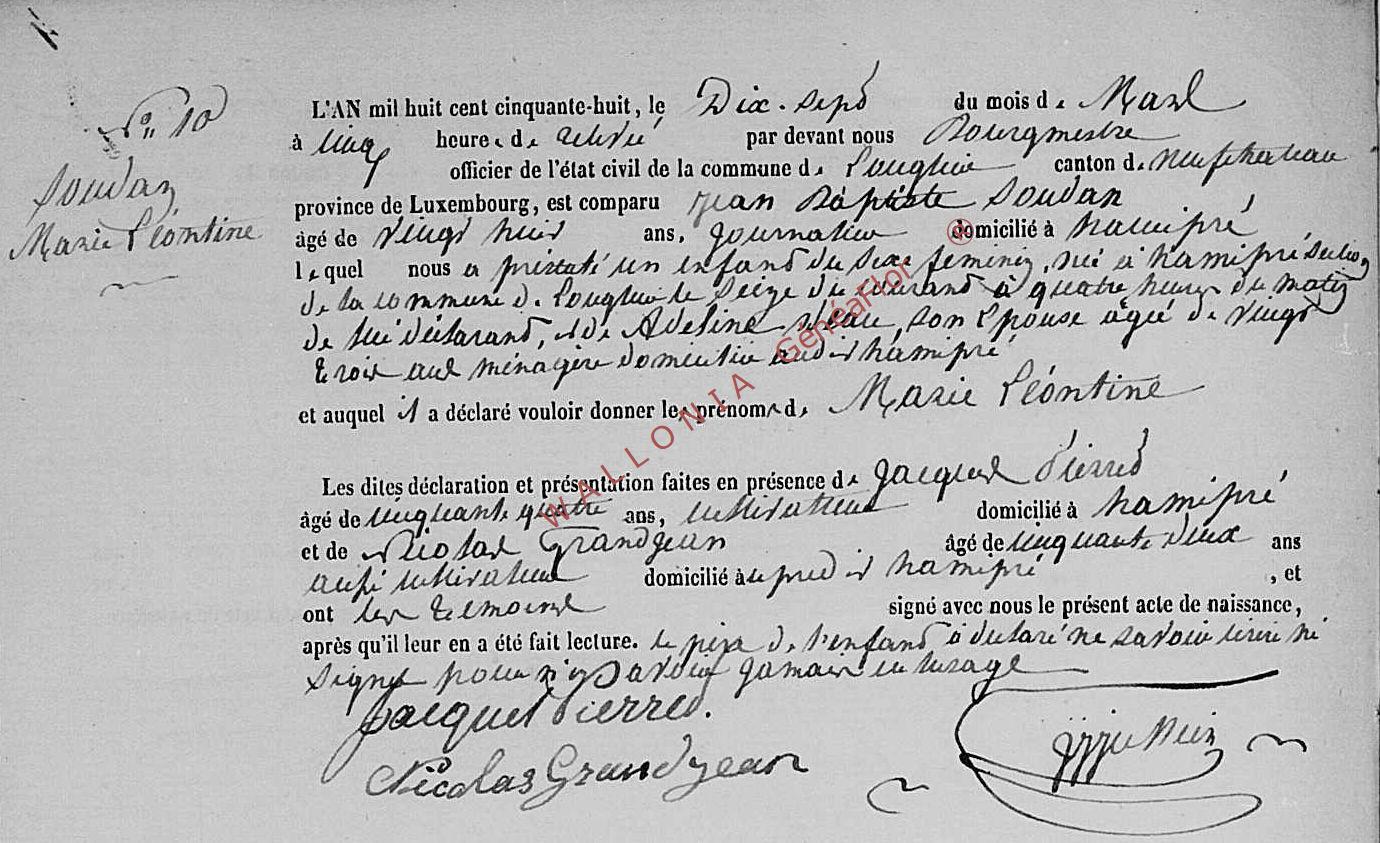 N° 10
Soudan
Marie Léontine
L'AN mil huit cent cinquante-huit, le Dix-sept du mois de Mars
à cinq heures de relevé par devant nous Bourgmestre
officier de l'état civil de la commune de Longlier canton de neufchateau
province de Luxembourg, est comparu Jean Baptiste Soudan
âgé de vingt huit ans, journalier domicilié à hamipré
lequel nous a présenté un enfant du sexe feminin, né à hamipré section
de la commune de Longlier le Seize du courant à quatre heures du matin
de lui déclarant, et de Adeline son Epouse âgée de vingt
trois ans ménagere domiciliée audit hamipré
et auquel il a déclaré vouloir donner les prénoms de Marie Léontine
Les dites déclaration et présentation faites en présence de Jacques Pierret
âgé de cinquante quatre ans, cultivateur domicilié à hamipré
et de Nicolas Grandjean âgé de cinquante deux ans
aussi cultivateur domicilié à hamipré , et
ont les témoins signé avec nous le présent acte de naissance,
après qu'il leur en a été fait lecture. le père de l'enfant à déclaré ne savoir écrire ni
signer pour n'en savoir jamais eu lusage
Jacques Pierret.
Nicolas Grandjean
WALLONIA GénéaFlor ®